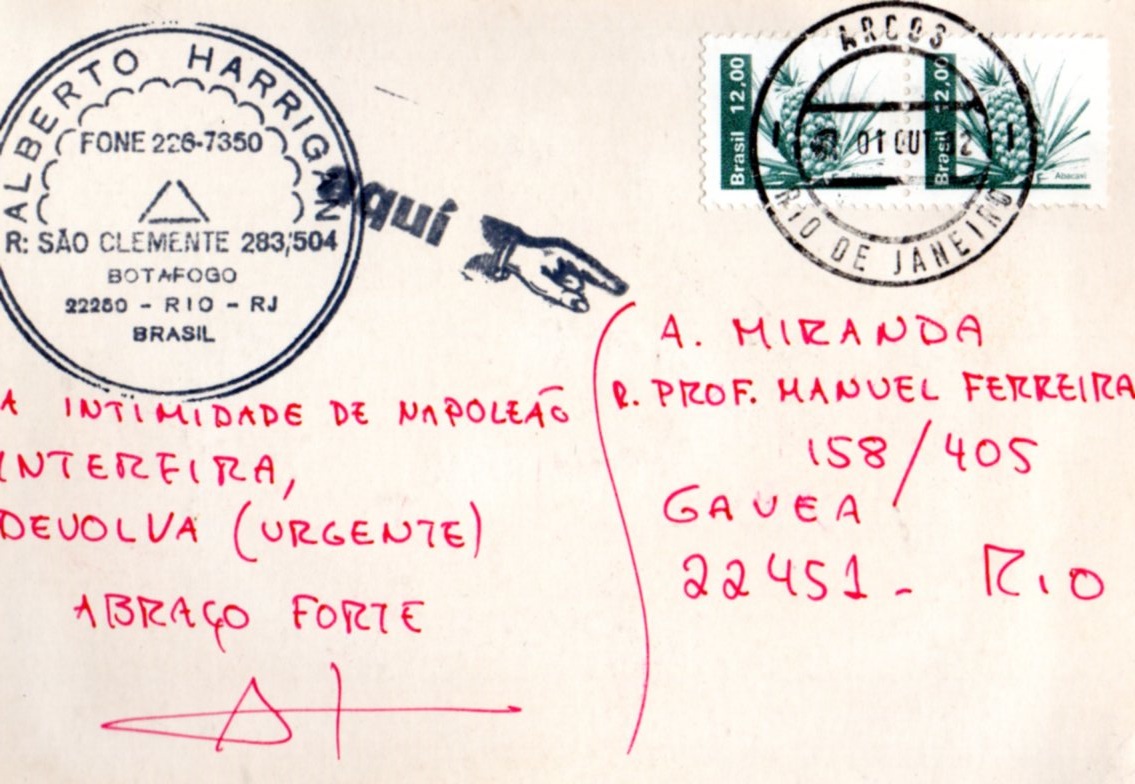 ALBERTO HARRIGAN
FONE 226-7350
R: SÃO CLEMENTE 283/504
BOTAFOGO
22260 - RIO - RJ
BRASIL
aquí
Brasil 12,00
Abacaxi
Brasil 12,00
Abacaxi
ARCOS
01 OUT 82
RIO DE JANEIRO
A INTIMIDADE DE NAPOLEÃO
INTERFIRA,
DEVOLVA (URGENTE)
ABRAÇO FORTE
A. MIRANDA
R. PROF. MANUEL FERREIRA
158/405
GAVEA
22451 - RIO